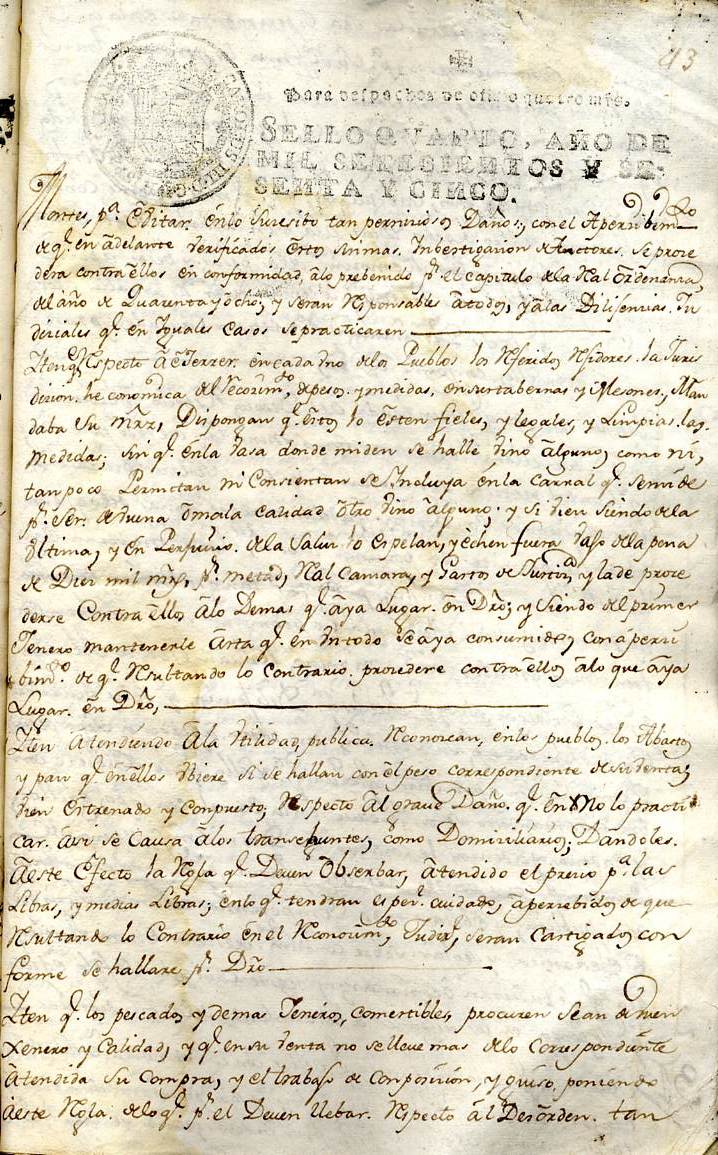 43
Para despachos de oficio quatro mrs.
SELLO QVARTO, AÑO DE
MIL SETECIENTOS Y SE-
SENTA Y CINCO.
Montes, pª. Evitar. énlo Suresibo tan perniziosos Daños; con el Aperzibimto
de qe. en adelante Verificados Estos Animas. Imbestigazion de Auctores. Se proze
dera contra éllos en conformidad, álo prebenido pr. el Capitulo de la Rl. Ordenanza,
del año de Quarenta y ócho; y seran Responsables átodos, y álas Dilisencias. Ju
diciales qe. én Yguales Casos se practicaren
Yten Respecto Á Exerzer. én cada Uno de los Pueblos los Referidos Rejidores. la Juris
dizion. he conomica del Reconimto, de pesos. y medidas, en sus tabernas y Mesones, Man
daba Su Mrz, Dispongan qe. Estos lo ésten fieles, y legales, y Limpias. las
medidas; sin qe. én la Vasa donde miden se halle Vino álguno, como ni,
tan poco Permitan ni Consientan se Yncluya én la Carral qe. se mide
pr. Ser. de Buena ó mala Calidad ótro Vino álguno; y si bien siendo de la
última, y én Perjuizio. de la Salud lo espelan, y échen fuera Vajo de la pena
de Diez mil mrs, pr. metad, Real Camara, y Gastos de Justizia y la de proze
derse Contra éllos álo Demas qe. áya Lugar. én Dro; y Siendo del primer
Jenero mantenerle ásta qe. én Un todo se áya consumido, con áperzi
bimto. de qe. Resultando lo Contrario. procedere contra éllos álo que áya
Lugar. én Dro,
Yten Atendiendo Ála Utilidad, publica. Reconozcan, énlos pueblos. los Abastos
y pan qe. én éllos Ubiere si se hallan con él peso correspondiente de su Venta;
bien Entrenado y Compuesto, Respecto Ál grave Daño. qe. én No lo practi
car. ási se Causa álos transehuntes, como Domiziliarios; Dandoles.
Áeste Efecto la Regla qe. Deven Obserbar, átendido el prezio pª. las
Libras, y medias Libras; énlo qe. tendran espezl. cuidado, ápercebidos de que
Resultando lo Contrario én el Reconozimto, Judizl, seran Castigados con
forme se hallare pr. Dro
Yten qe. los pescados y demas Jeneros, Comertibles, procuren Sean de Buen
Xenero y Calidad, y qe. en su Venta no se lleve mas de lo Correspondiente
Atendida Su Compra, y el trabajo de Composizion, y guiso, poniendo
áeste Regla. de lo qe. pr. el Deven llebar. Respecto ál Desorden. tan